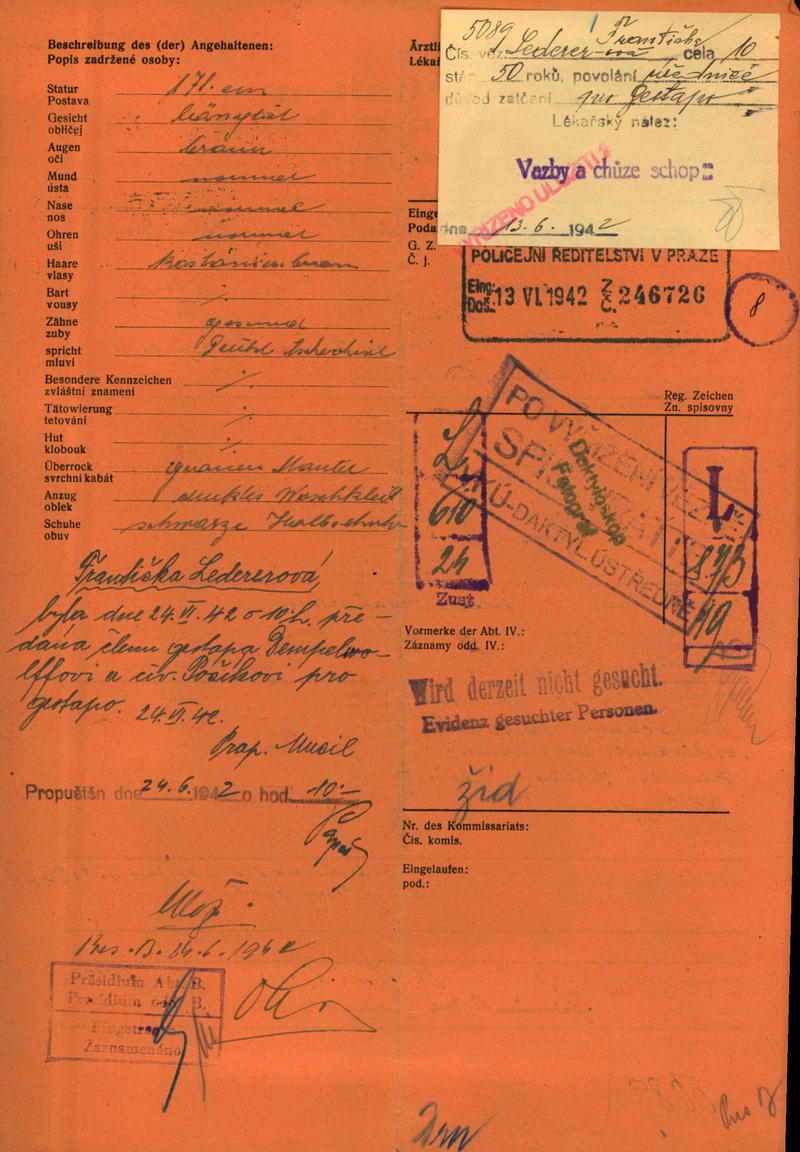 Beschreibung des (der) Angehaltenen:
Popis zadržené osoby:
Statur
Postava
171. cm
Gesicht
obličej
länglich
Augen
oči
braun
Mund
ústa
normal
Nase
nos
normal
Ohren
uši
normal
Haare
vlasy
Kastanienbraun
Bart
vousy
⁒
Zähne
zuby
gesund
spricht
mluví
Deutsch Tschechisch
Besondere Kennzeichen
zvláštní znamení
⁒
Tätowierung
tetování
⁒
Hut
klobouk
⁒
Überrock
svrchní kabát
grauen Mantel
Anzug
oblek
dunkles Waschkleid
Schuhe
obuv
schwarze Halbschuhe
Františka Ledererová,
byla dne 24. VI. 42 o 10 h. pře-
dána členu gestapa Dempelwo-
lffovi a civ. Pošíkovi pro
gestapo. 24. VI. 42.
Prap. Musil
Propuštěn dne 24. 6. 1942 o hod. 10.-
24. 6. 1942
Präsidium Abt. B.
Presidium odd. B.
Eingetragen
Zaznamenáno
5089 Františka
Čís. věz. Lederer-ová cela 10
stár. 50 roků, povolání úřednice
důvod zatčení pro Gestapo
Lékařský nález:
Vazby a chůze schop
VYŘÍZENO
dne 13. 6. 1942
Ärztli
Lékař
Einge
Poda
G. Z.
Č. j.
POLICEJNÍ ŘEDITELSTVÍ V PRAZE
Eing.
Doš. 13 VI. 1942 Z. Č. 246726
8
Reg. Zeichen
Zn. spisovny
PO VYŘÍZENÍ
Daktyloskop
Fotograf
DAKTYL. ÚSTŘEDNĚ
L
610
24
Zust
L
873
19
Vormerke der Abt. IV.:
Záznamy odd. IV.:
Wird derzeit nicht gesucht.
Evidenz gesuchter Personen.
žid
Nr. des Kommissariats:
Čís. komis.
Eingelaufen:
pod.: